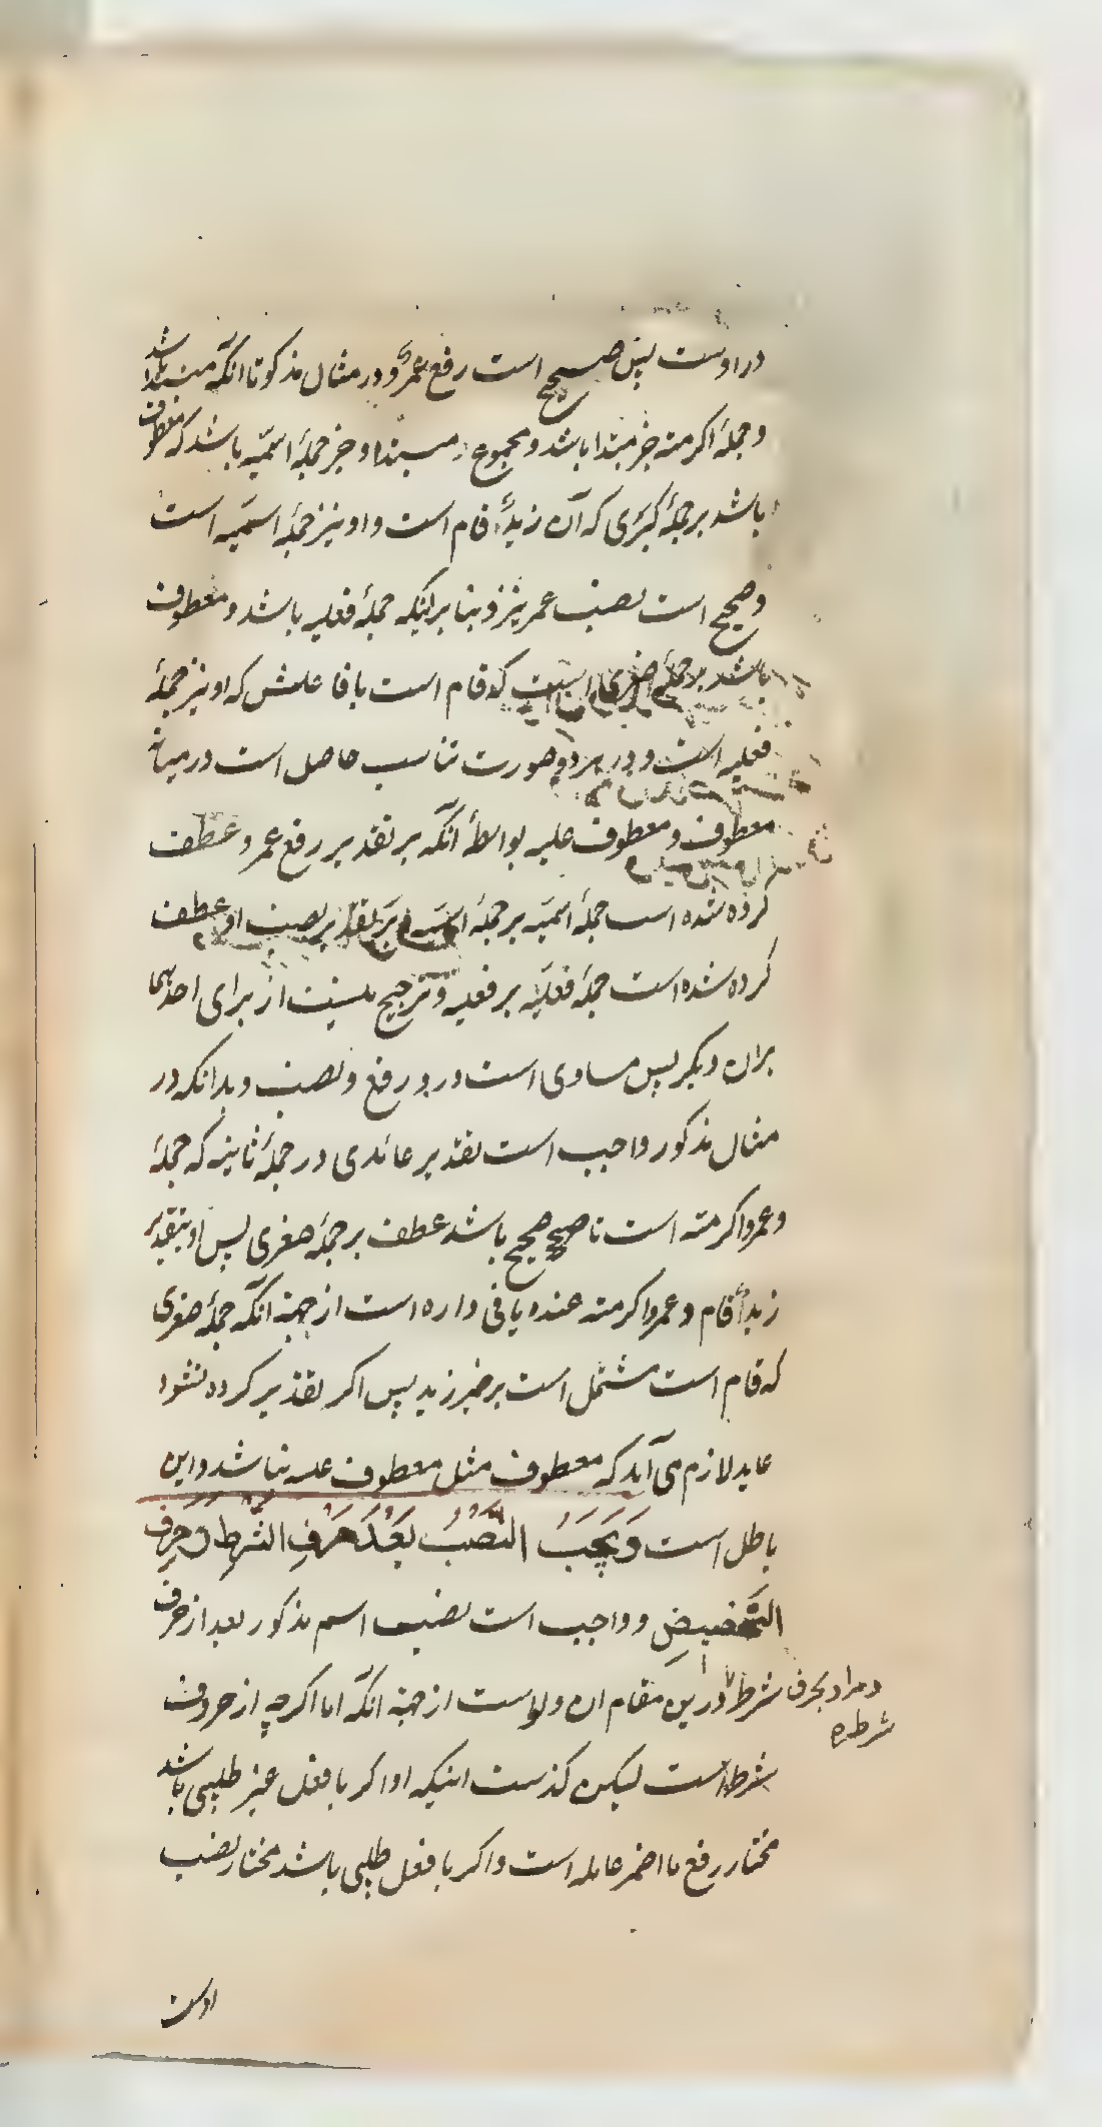 در اوست پس صحیح است رفع عمرو در مثال مذکور تا انکه مبتدا باشد
و جملهٔ اکرمته خبر مبتدا باشد و مجموع مبتدا و خبر جملهٔ اسمیه باشد که معطوف
باشد بر جملهٔ کبری که آن زیدٌ قام است و او نیز جملهٔ اسمیه است
و صحیح است نصب عمرو نیز بنا بر اینکه جملهٔ فعلیه باشد و معطوف
باشد بر جملهٔ صغری که قام است با فاعلش که او نیز جملهٔ
فعلیه است و در هر دو صورت تناسب حاصل است در میان
معطوف و معطوف علیه بواسطهٔ انکه بر تقدیر رفع عمرو عطف
کرده شده است جملهٔ اسمیه بر جملهٔ اسمیه و بر تقدیر نصب او عطف
کرده شده است جملهٔ فعلیّه بر فعلیه و ترجیح نیست از برای احدیهما
بران دیکر پس مساوی است درو رفع و نصب و بدانکه در
مثال مذکور واجب است تقدیر عائدی در جملهٔ ثانیه که جملهٔ
و عمرو اکرمته است تا صحیح باشد عطف بر جملهٔ صغری پس او بتقدیر
زیدٌ قام و عمروا اکرمته عنده یا فی داره است از جهة انکه جملهٔ صغری
که قام است مشتمل است بر ضمیر زید پس اکر تقدیر کرده نشود
عاید لازم می آید که معطوف مثل معطوف علیه نباشد و این
باطل است وَ یَجِبُ النَصبُ بَعْدَ حَرفِ الشَرطِ وَ حَرفِ
التَحضیضِ و واجب است نصب اسم مذکور بعد از حرف
شرط در این مقام ان و لو است از جهة انکه اما اکرچه از حروف
و مراد بحرف
شرط
شرط است لیکن کذشت اینکه او اکر با فعل غیر طلبی باشد
مختار رفع ما اضمر عامله است و اکر با فعل طلبی باشد مختار نصب
اوست